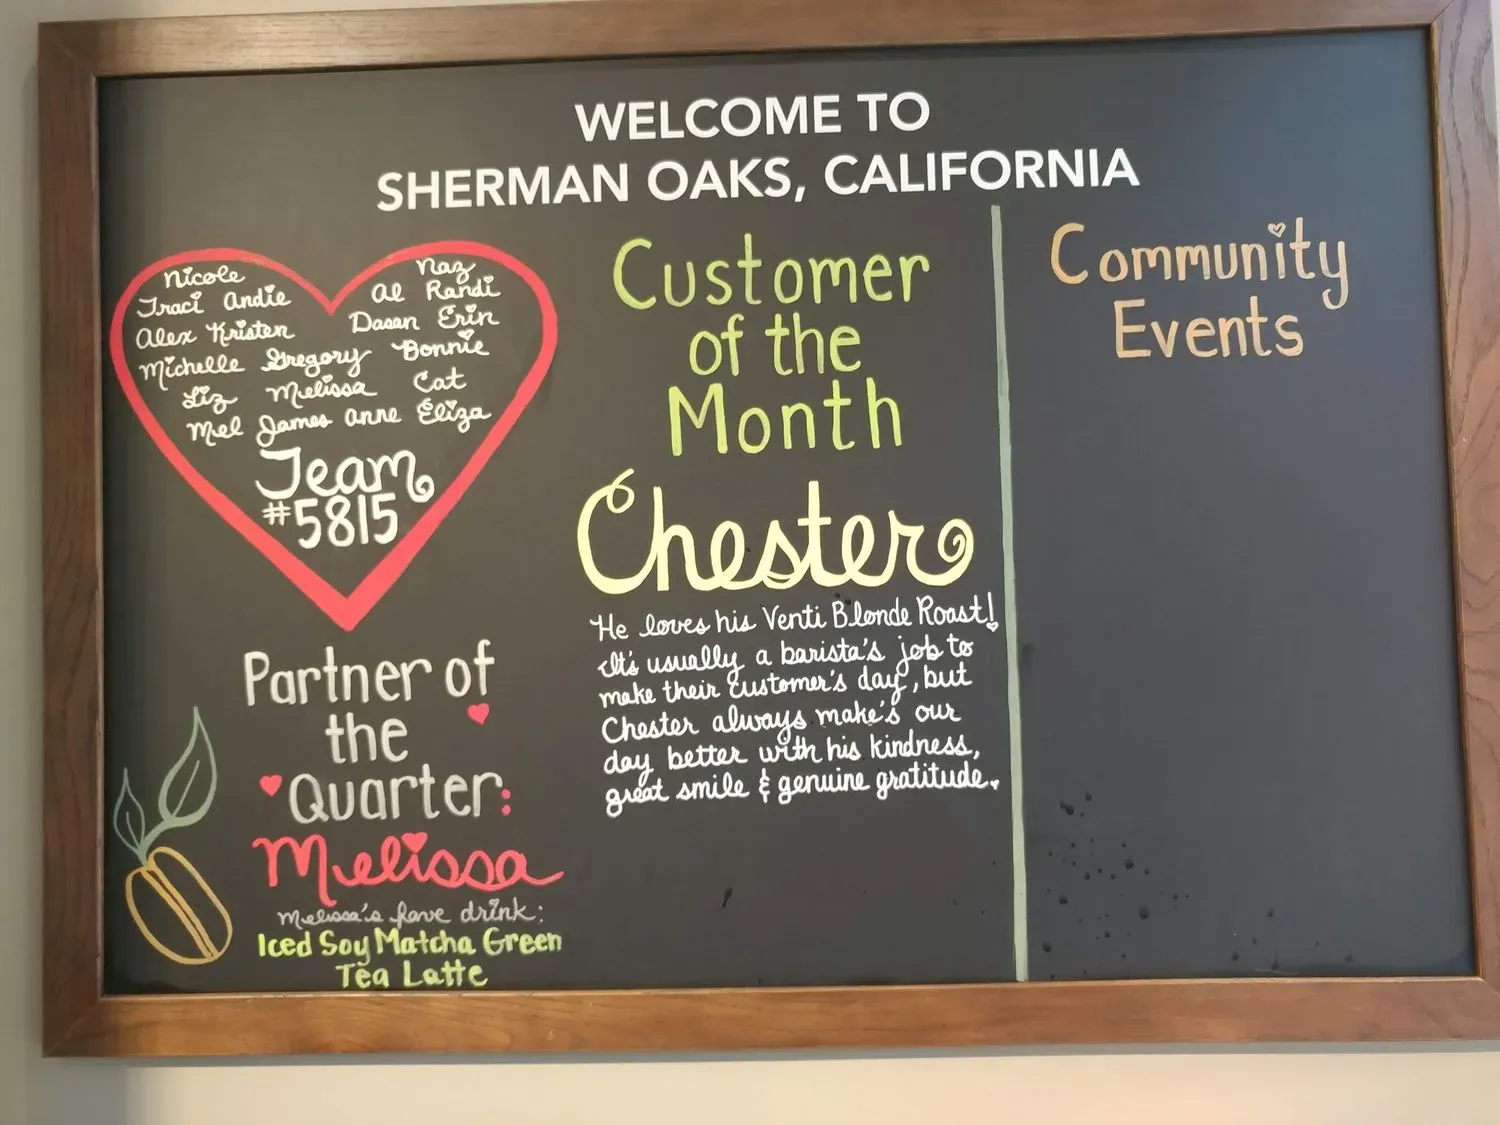 WELCOME TO
SHERMAN OAKS, CALIFORNIA
Nicole
Naz
Traci Andie
Al Randi
Alex Kristen
Dasan Erin
Michelle Gregory Bonnie
Liz Melissa Cat
Mel James Anne Eliza
Team
#5815
Partner of
the
Quarter:
Melissa
Melissa's fave drink:
Iced Soy Matcha Green
Tea Latte
Customer
of the
Month
Chester
He loves his Venti Blonde Roast!
It's usually a barista's job to
make their customer's day, but
Chester always make's our
day better with his kindness,
great smile & genuine gratitude.
Community
Events